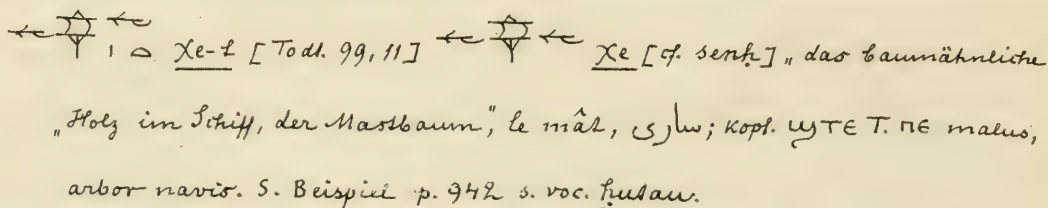 χe-t [Todt. 99,11] χe [cf. senḥ] „das baumähnliche
„Holz im Schiff, der Mastbaum“, le mât, ساری; kopt. ϣⲧⲉ T. ⲡⲉ malus,
arbor navis. S. Beispiel p. 942 s. voc. ḥutau.